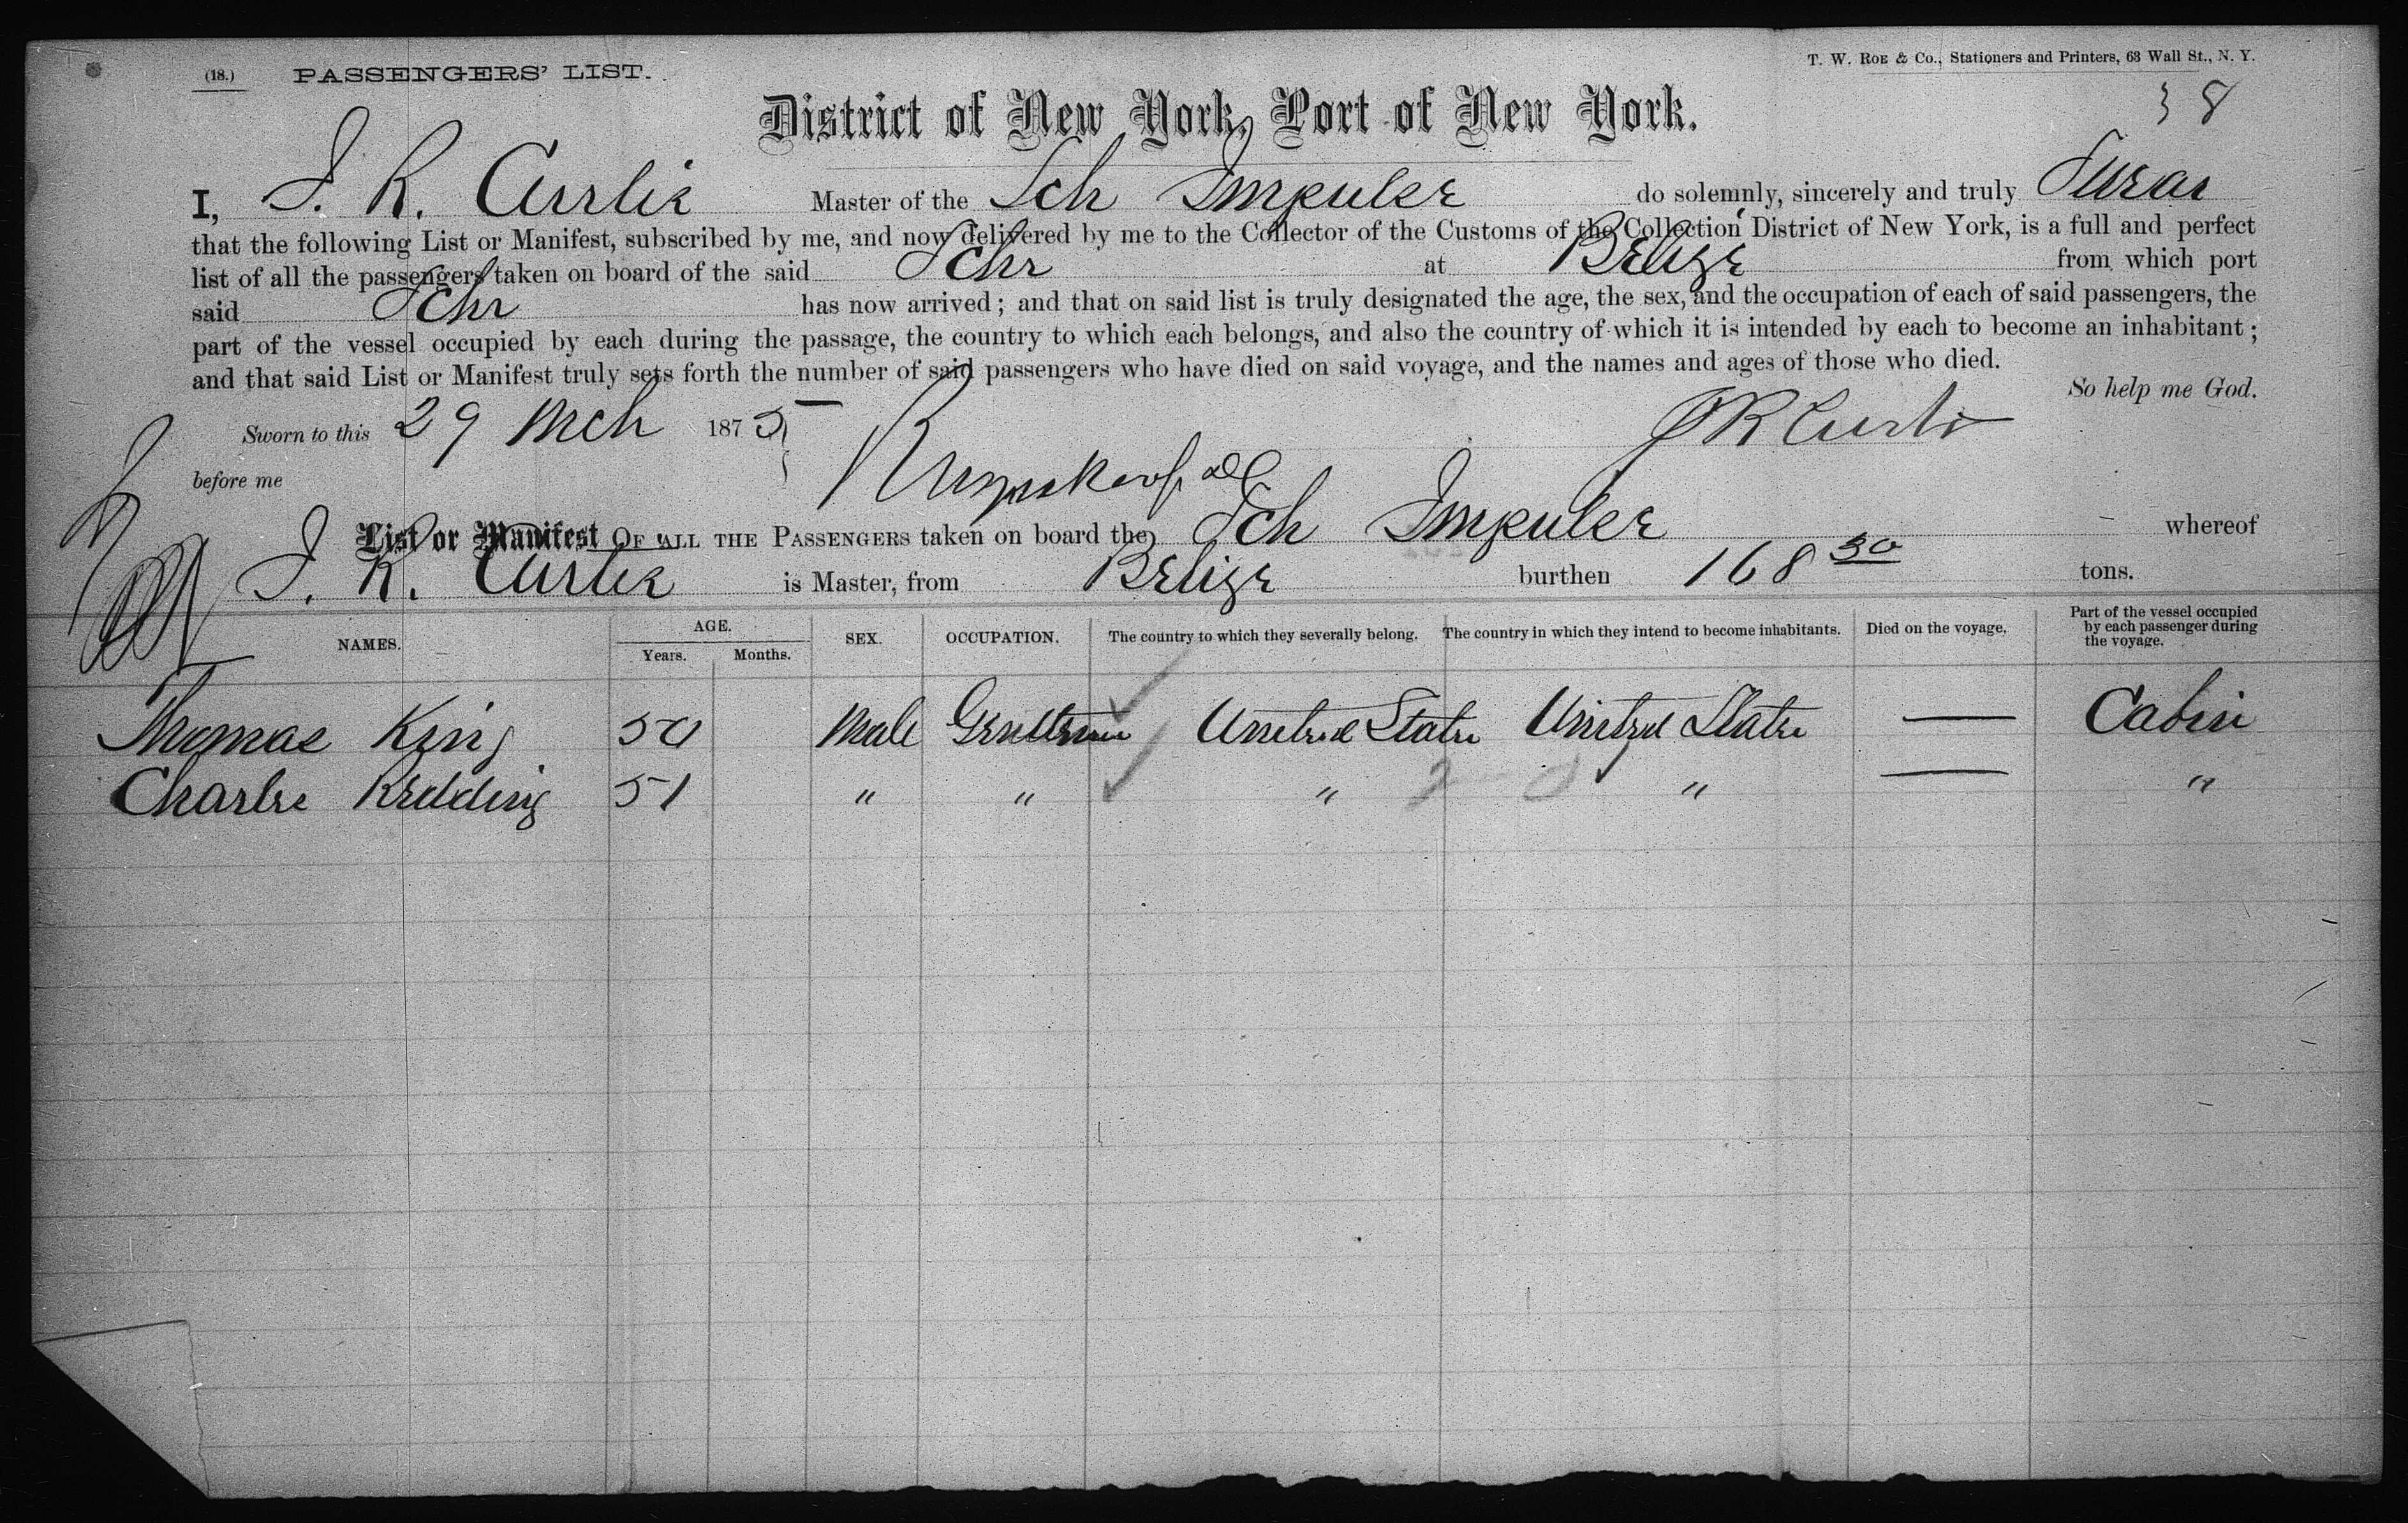 (18.) PASSENGERS' LIST.
T. W. ROE & Co., Stationers and Printers, 63 Wall St., N. Y.
38
District of New York, Port of New York.
I, J. R. Curlie Master of the Sch Impulse do solemnly, sincerely and truly Swear
that the following List or Manifest, subscribed by me, and now delivered by me to the Collector of the Customs of the Collection District of New York, is a full and perfect
list of all the passengers taken on board of the said Schr at Belize from which port
said Schr has now arrived; and that on said list is truly designated the age, the sex, and the occupation of each of said passengers, the
part of the vessel occupied by each during the passage, the country to which each belongs, and also the country of which it is intended by each to become an inhabitant;
and that said List or Manifest truly sets forth the number of said passengers who have died on said voyage, and the names and ages of those who died.
So help me God.
Sworn to this 29 Mch 1875
before me
List or Manifest OF ALL THE PASSENGERS taken on board the Sch Impulse whereof
J. R. Curlie is Master, from Belize burthen 168 30 tons.
NAMES. AGE. Years. Months. SEX. OCCUPATION. The country to which they severally belong. The country in which they intend to become inhabitants. Died on the voyage. Part of the vessel occupied by each passenger during the voyage.
Thomas King 50 Male Gentleman United State United State — Cabin
Charles Redding 51 " " " " — "